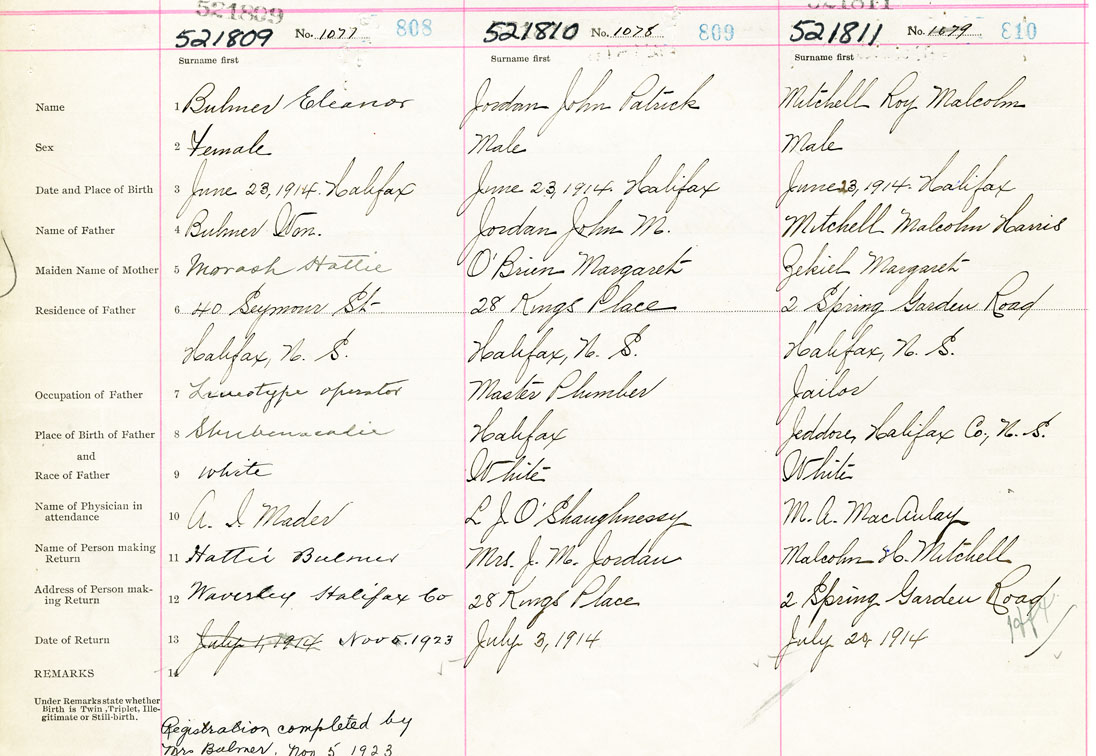 521809 521811
521809 No. 1077 808 521810 No. 1078 809 521811 No. 1079 810
Surname first Surname first Surname first
Name 1 Bulmer Eleanor Jordan John Patrick Mitchell Roy Malcolm
Sex 2 Female Male Male
Date and Place of Birth 3 June 23, 1914. Halifax June 23, 1914. Halifax June 23, 1914. Halifax
Name of Father 4 Bulmer Wm. Jordan John M. Mitchell Malcolm Harris
Maiden Name of Mother 5 Morash Hattie O'Brien Margaret Zekiel Margaret
Residence of Father 6 40 Seymour St 28 Kings Place 2 Spring Garden Road
Halifax, N. S. Halifax, N. S. Halifax, N. S.
Occupation of Father 7 Linotype operator Master Plumber Jailor
Place of Birth of Father 8 Shubenacadie Halifax Jeddore, Halifax Co., N. S.
and
Race of Father 9 White White White
Name of Physician in
attendance 10 A. I. Mader L J. O'Shaughnessy M. A. MacAulay
Name of Person making
Return 11 Hattie Bulmer Mrs. J. M. Jordan Malcolm H. Mitchell
Address of Person mak-
ing Return 12 Waverley Halifax Co 28 Kings Place 2 Spring Garden Road
Date of Return 13 July 1, 1914 Nov 5. 1923 July 3, 1914 July 20 1914
REMARKS 14
Under Remarks state whether
Birth is Twin, Triplet, Ille-
gitimate or Still-birth.
Registration completed by
Mrs Bulmer, Nov 5 1923